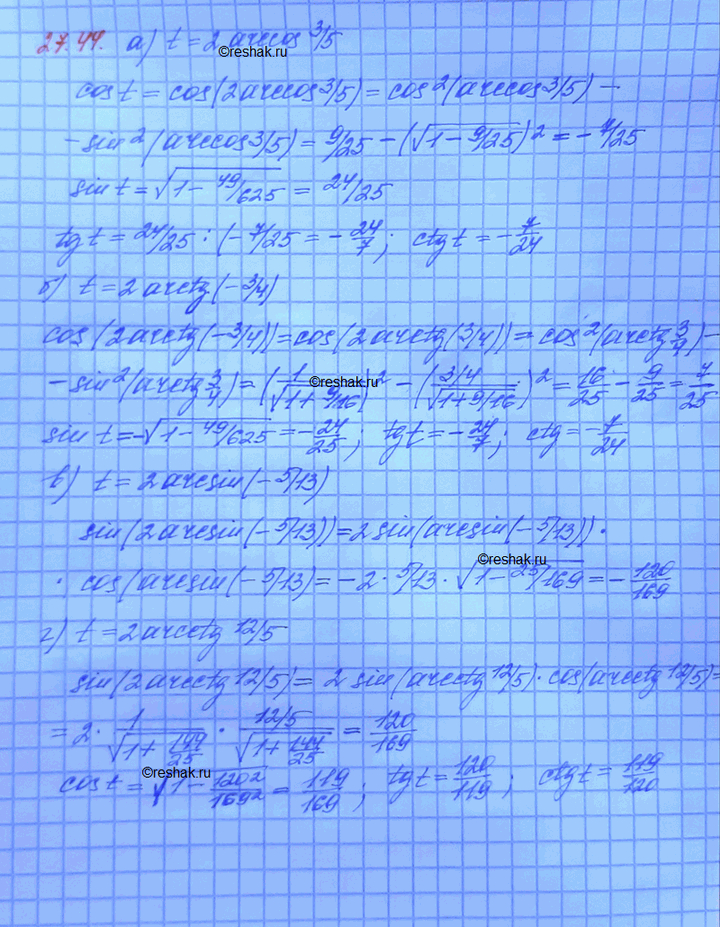 27.44. а) t = 2 arccos 3/5
©reshak.ru
cos t = cos(2 arccos 3/5) = cos²(arccos 3/5) −
− sin²(arccos 3/5) = 9/25 − (√1−9/25)² = −7/25
sin t = √1−49/625 = 24/25
tg t = 24/25 : (−7/25 = −24/7; ctg t = −7/24
б) t = 2 arctg(−3/4)
cos(2 arctg(−3/4)) = cos(2 arctg(3/4)) = cos²(arctg 3/4) −
− sin²(arctg 3/4) = (1/√1+9/16)² − (3/4/√1+9/16)² = 16/25 − 9/25 = 7/25
©reshak.ru
sin t = −√1−49/625 = −24/25; tg t = −24/7; ctg = −7/24
в) t = 2 arcsin(−5/13)
sin(2 arcsin(−5/13)) = 2 sin(arcsin(−5/13)) ·
©reshak.ru
· cos(arcsin(−5/13) = −2 · 5/13 · √1−25/169 = −120/169
г) t = 2 arcctg 12/5
sin(2 arcctg 12/5) = 2 sin(arcctg 12/5) · cos(arcctg 12/5) =
= 2 · 1/√1+144/25 · 12/5/√1+144/25 = 120/169
©reshak.ru
cos t = √1−120²/169² = 119/169; tg t = 120/119; ctg t = 119/120